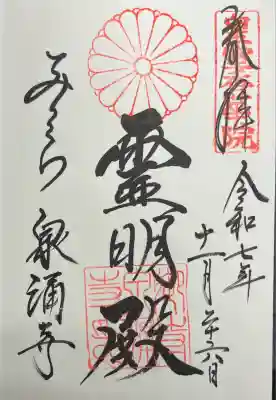 奉拝
令和七年
十一月廿六日
霊明殿
みてら
泉涌寺